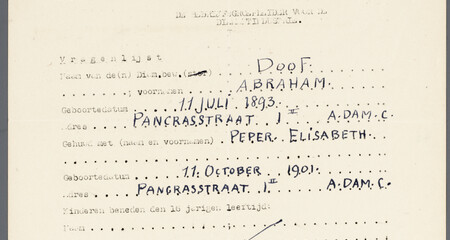 Vragenlijst
Naam van de(n) DOOF.
voornamen ABRAHAM.
Geboortedatum 11 JULI 1893.
Adres PANCRASSTRAAT 1 II A.DAM.C.
Gehuwd met (naam en voornamen) PEPER ELISABETH.
Geboortedatum 11 OCTOBER 1901.
Adres PANCRASSTRAAT 1 II A.DAM.C.
Kinderen beneden den 16 jarigen leeftijd:
Naam